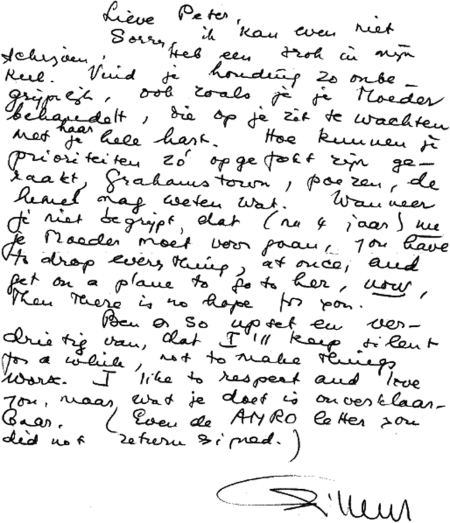 Lieve Peter,
Sorry, ik kan even niet
schrijven, heb een brok in mijn
keel. Vind je houding zo onbe-
grijpelijk, ook zoals je je Moeder
behandelt, die op je zit te wachten
met haar hele hart. Hoe kunnen je
prioriteiten zó opgefokt zijn ge-
raakt, Grahamstown, poezen, de
hemel mag weten wat. Wanneer
je niet begrijpt, dat (na 4 jaar) nu
je Moeder moet voor gaan, you have
to drop everything, at once, and
get on a plane to go to her, now,
then there is no hope for you.
Ben er so upset en ver-
drietig van, dat I'll keep silent
for a while, not to make things
worse. I like to respect and love
you, maar wat je doet is onverklaar-
baar. (Even de AMRO letter you
did not return signed.)